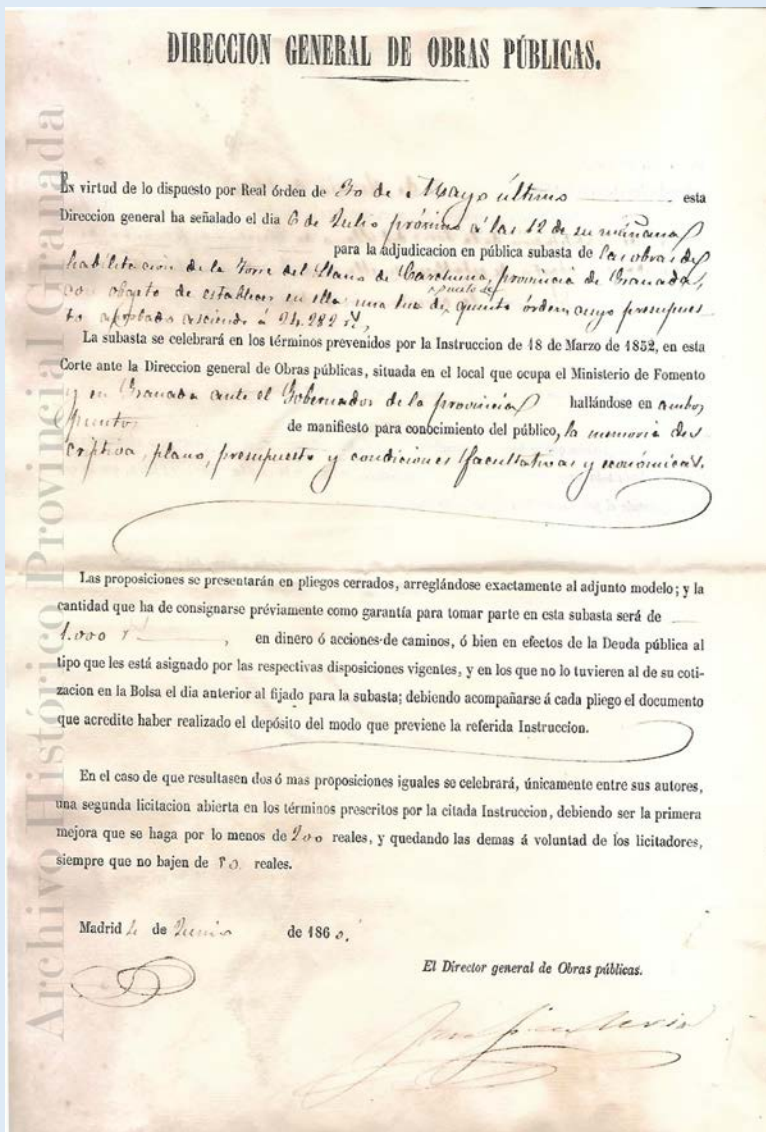 DIRECCION GENERAL DE OBRAS PÚBLICAS.
En virtud de lo dispuesto por Real órden de 30 de Mayo último esta
Direccion general ha señalado el dia 6 de Julio próximo á las 12 de su mañana
para la adjudicacion en pública subasta de las obras de
habilitacion de la Torre del Llano de Carchuna, provincia de Granada,
con objeto de establecer en ella una luz de quinto órden, cuyo presupues-
to aprobado asciende á 24.282
La subasta se celebrará en los términos prevenidos por la Instruccion de 18 de Marzo de 1852, en esta
Corte ante la Direccion general de Obras públicas, situada en el local que ocupa el Ministerio de Fomento
y en Granada ante el Gobernador de la provincia hallándose en ambos
puntos de manifiesto para conocimiento del público, la memoria des
criptiva, plano, presupuesto y condiciones facultativas y económicas.
Las proposiciones se presentarán en pliegos cerrados, arreglándose exactamente al adjunto modelo; y la
cantidad que ha de consignarse préviamente como garantía para tomar parte en esta subasta será de
1.000 , en dinero ó acciones de caminos, ó bien en efectos de la Deuda pública al
tipo que les está asignado por las respectivas disposiciones vigentes, y en los que no lo tuvieren al de su coti-
zacion en la Bolsa el dia anterior al fijado para la subasta; debiendo acompañarse á cada pliego el documento
que acredite haber realizado el depósito del modo que previene la referida Instruccion.
En el caso de que resultasen dos ó mas proposiciones iguales se celebrará, únicamente entre sus autores,
una segunda licitacion abierta en los términos prescritos por la citada Instruccion, debiendo ser la primera
mejora que se haga por lo menos de 200 reales, y quedando las demas á voluntad de los licitadores,
siempre que no bajen de reales.
Madrid 4 de Junio de 1860.
El Director general de Obras públicas.
Archivo Histórico Provincial Granada